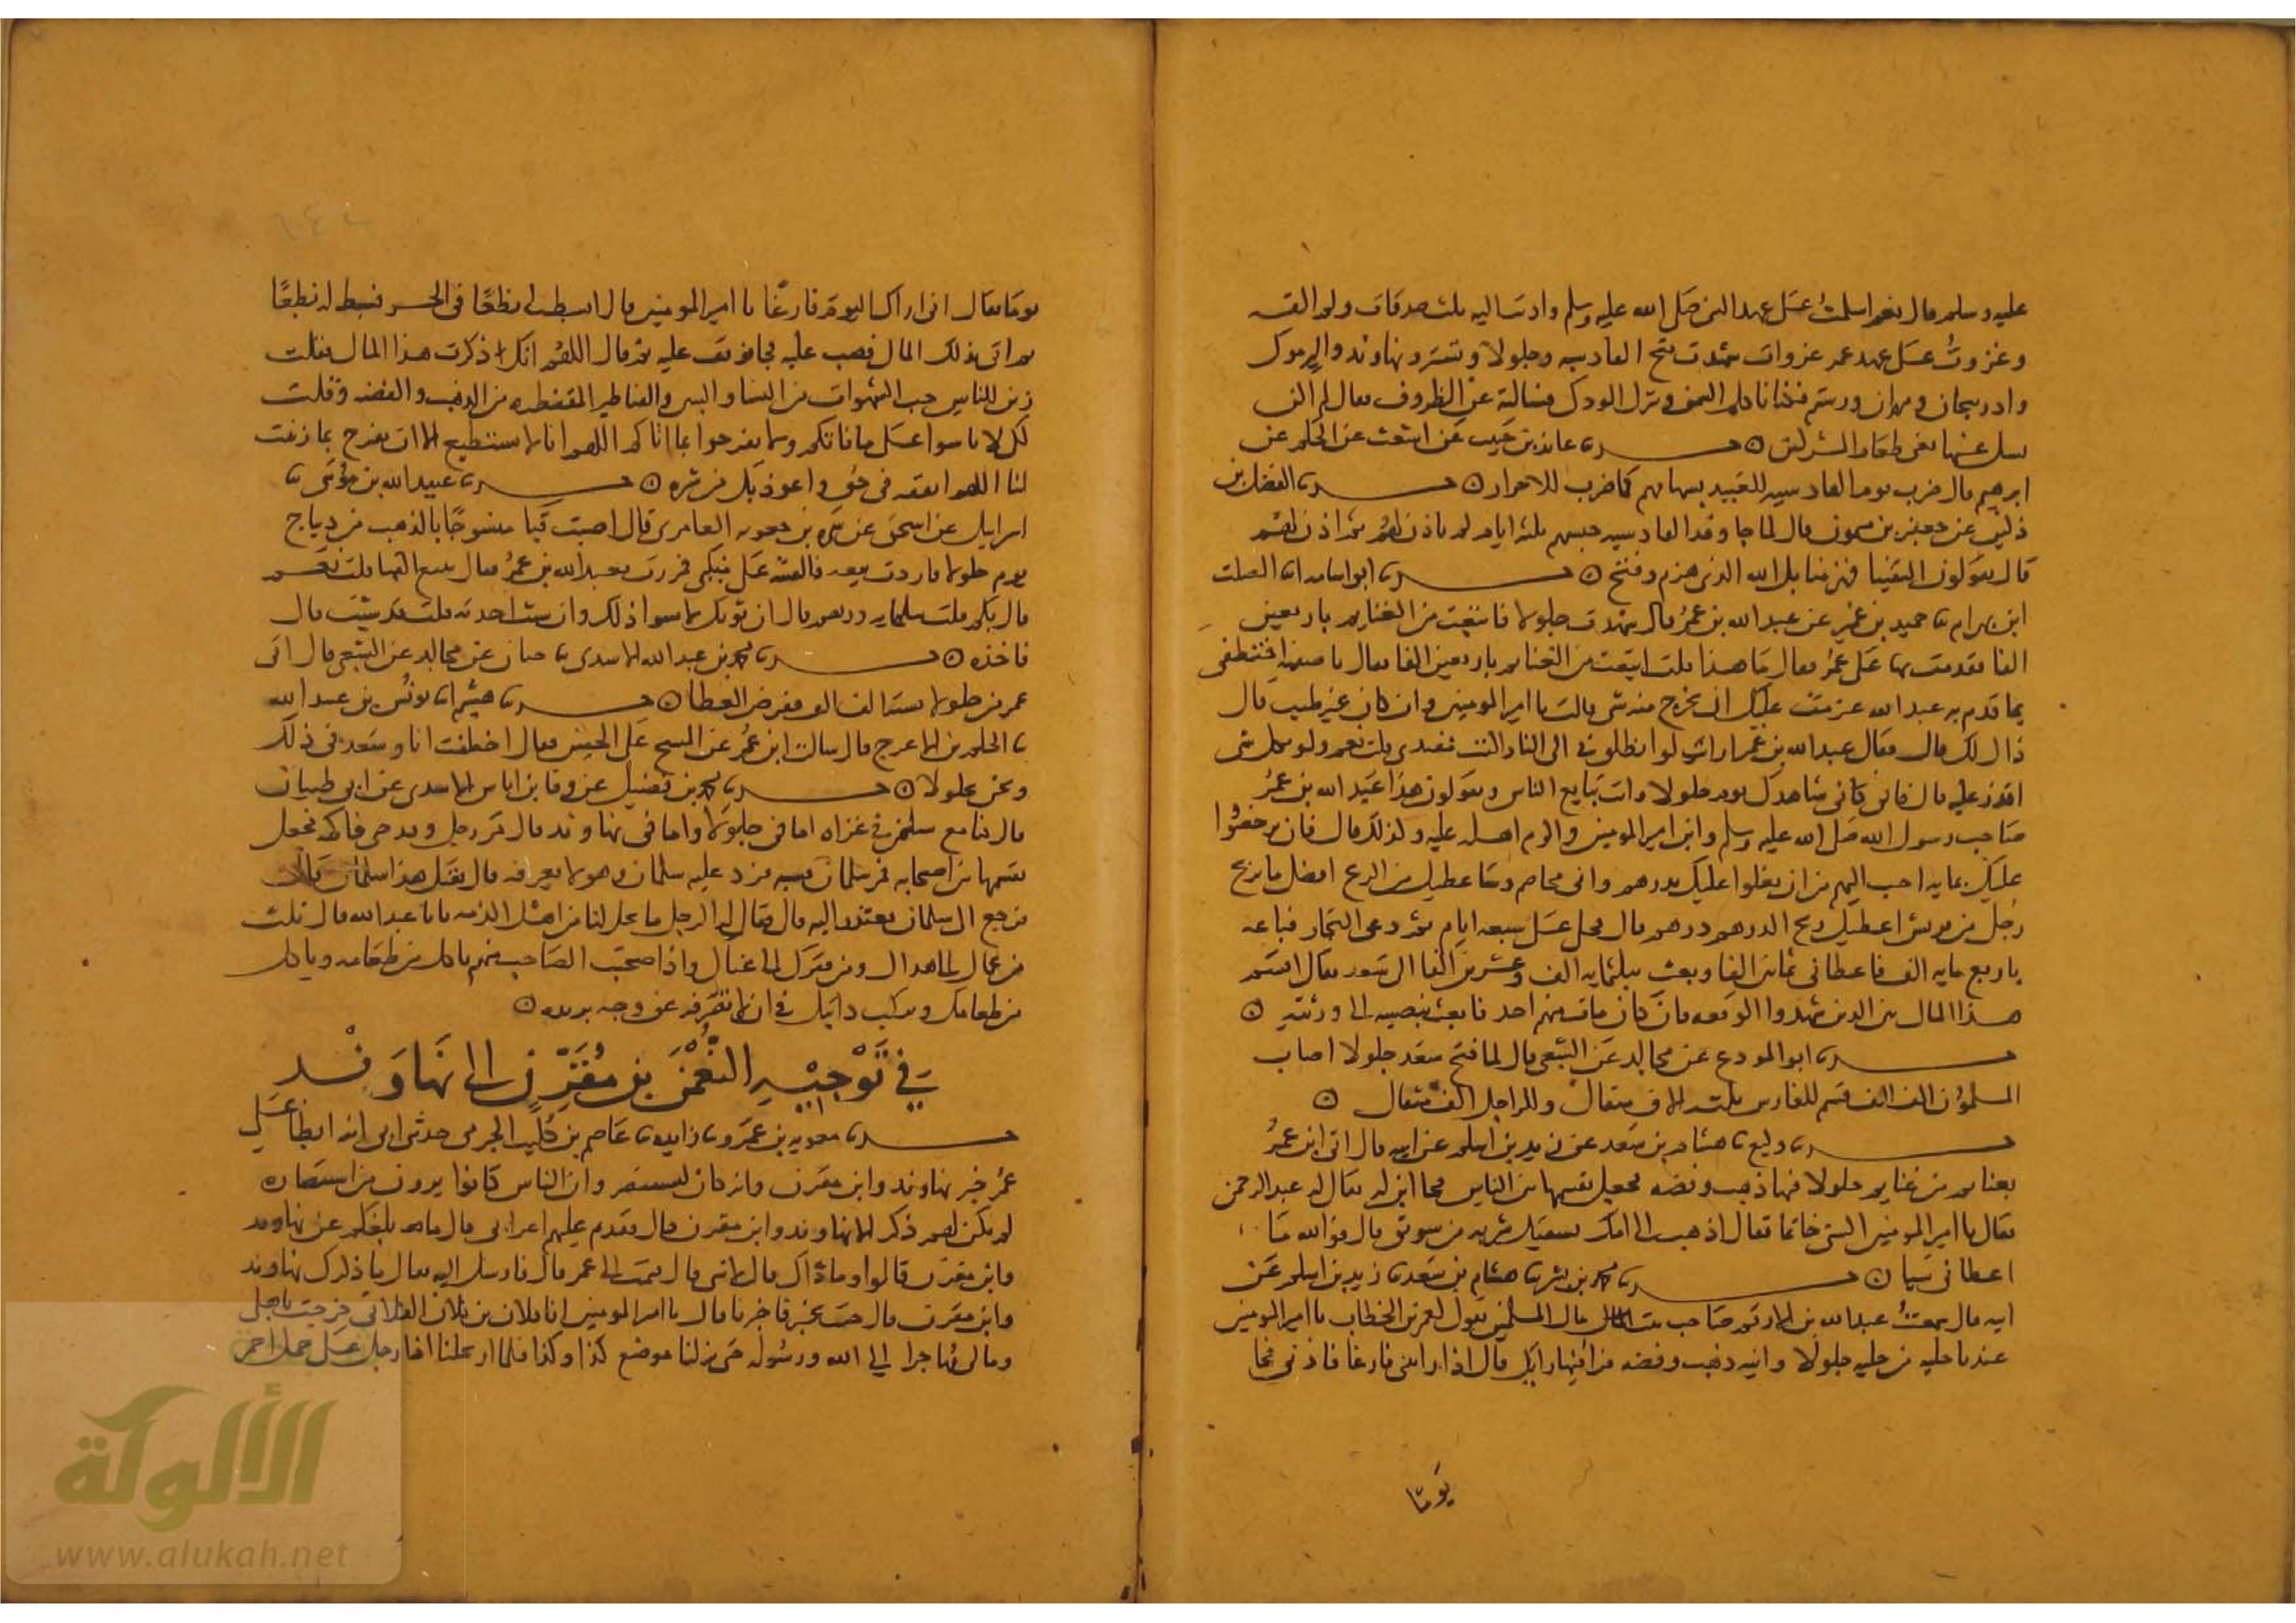 عليه وسلم قال نعم اسلمت على عهد النبي صلى الله عليه وسلم واديت اليه ثلث صدقات ولم القه
وغزوت على عهد عمر غزوات شهدت فتح القادسيه وجلولا وتستر ونهاوند واليرموك
واذربيجان ومهران ورستم فكنا ناكل السمن ونترك الودك فسالته عن الظروف فقال لم اكن
نسل عنها يعني طعام المشركين ۞ حدثنا عائذ بن حبيب عن اشعث عن الحكم عن
ابرهيم قال ضرب يوم القادسيه للعبيد بسهامهم كما ضرب للاحرار ۞ حدثنا الفضل بن
دكين عن جعفر عن ميمون قال لما جا وفد القادسيه حبسهم ثلثه ايام لم ياذن لهم ثم اذن لهم
قال يقولون التقينا فهزمنا بل الله الذي هزم وفتح ۞ حدثنا ابو اسامه انا الصلت
ابن بهرام نا جميع بن عمير عن عبد الله بن عمر قال شهدت جلولا فابتعت من الغنايم باربعين
الفا فقدمت بها على عمر فقال ما هذا قلت ابتعت من الغنايم باربعين الفا فقال يا صفيه احتفظي
بما قدم به عبد الله عزمت عليك ان تخرج منه شي قالت يا امير المومنين وان كان غير طيب قال
ذاك لك قال فقال عبد الله بن عمر ارايت لو انطلق بي الى النار اكنت مفتدي قلت نعم ولو بكل شي
اقدر عليه قال فاني كاني شاهدك يوم جلولا وانت تبايع الناس ويقولون هذا عبد الله بن عمر
صاحب رسول الله صلى الله عليه وسلم وابن امير المومنين واكرم اهله عليه وكذلك قال فان يرخصوا
عليك بمايه احب اليهم من ان يغلوا عليك بدرهم واني مخاصم وساعطيك من الربح افضل ما ربح
رجل من قريش اعطيك ربح الدرهم درهم قال فخلى على سبعه ايام ثم دعى التجار فباعه
باربع مايه الف فاعطاني ثمانين الفا وبعث بثلثمايه الف وعشرين الفا الى سعد فقال اقسم
هذا المال بين الذين شهدوا الوقعه فان كان مات منهم احد فابعث بنصيبه الى ورثته ۞
حدثنا ابو المورع عن مجالد عن الشعبي قال لما فتح سعد جلولا اصاب
المسلمون الف الف قسم للفارس ثلثه الاف مثقال وللراجل الف مثقال ۞
حدثنا وكيع نا هشام بن سعد عن زيد بن اسلم عن ابيه قال اتى ابن عمر
بغنايم من غنايم جلولا فيها ذهب وفضه فجعل يقسمها بين الناس فجا ابن له يقال له عبد الرحمن
فقال يا امير المومنين اكسني خاتما فقال اذهب الى امك تسقيك شربه من سويق قال فوالله ما
اعطاني شيا ۞ حدثنا محمد بن بشر نا هشام بن سعد نا زيد بن اسلم عن
ابيه قال سمعت عبد الله بن الارقم صاحب بيت مال المسلمين يقول لعمر بن الخطاب يا امير المومنين
عندنا حليه من حليه جلولا وانيه ذهب وفضه فر فيها رايك قال اذا رايتني فارغا فاذني فجا
يوما
يوما فقال اني اراك اليوم فارغا يا امير المومنين قال ابسط لي نطعا في الجسر فبسط له نطعا
ثم اتى بذلك المال فصب عليه فجا فوقف عليه ثم قال اللهم انك ذكرت هذا المال فقلت
زين للناس حب الشهوات من النسا والبنين والقناطير المقنطره من الذهب والفضه وقلت
لكيلا تاسوا على ما فاتكم ولا تفرحوا بما اتاكم اللهم انا لا نستطيع الا ان نفرح بما زينت
لنا اللهم انفقه في حق واعوذ بك من شره ۞ حدثنا عبيد الله بن موسى نا
اسرايل عن ابي اسحق عن سمره بن جعونه العامري قال اصبت قبا منسوجا بالذهب من ديباج
يوم جلولا فاردت بيعه فالقيته على منكبي فمررت بعبد الله بن عمر فقال تبيع القبا قلت نعم
قال بكم قلت بثلثمايه درهم قال ان ثوبك لا يسوا ذلك وان شيت اخذته قلت قد شيت قال
فاخذه ۞ حدثنا محمد بن عبد الله الاسدي نا حبان عن مجالد عن الشعبي قال اتى
عمر من جلولا بستة الف الف ففرض العطا ۞ حدثنا هشيم انا يونس بن عبد الله
نا الحكم بن الاعرج قال سالت ابن عمر عن المسح على الخفين فقال اختلفت انا وسعد في ذلك
ونحن بجلولا ۞ حدثنا محمد بن فضيل عن وقا بن اياس الاسدي عن ابي ظبيان
قال كنا مع سلمان في غزاه اما في جلولا واما في نهاوند قال فمر رجل وقد جنى فاكهه فجعل
يقسمها بين اصحابه فمر سلمان فسبه فرد عليه سلمان وهو لا يعرفه قال فقيل هذا سلمان قال
فرجع الى سلمان يعتذر اليه قال فقال له الرجل ما يحل لنا من اهل الذمه يا ابا عبد الله قال ثلث
من عماك الى هداك ومن فقرك الى غناك واذا صحبت الصاحب منهم تاكل من طعامه وياكل
من طعامك ويركب دابتك في ان لا تصرفه عن وجه يريده ۞
في توجيه النعمن بن مقرن الى نهاوند
حدثنا معويه بن عمرو نا زايده نا عاصم بن كليب الجرمي حدثني ابي انه ابطا على
عمر خبر نهاوند وابن مقرن وانه كان يستنصر وان الناس كانوا يرون من استنصاره
انه لم يكن لهم ذكر الا نهاوند وابن مقرن قال فقدم عليهم اعرابي فقال ما بلغكم عن نهاوند
وابن مقرن قالوا وما ذاك قال لا شي قال فنمت الى عمر قال فارسل اليه فقال ما ذكرك نهاوند
وابن مقرن فان جيت بخبر فاخبرنا قال يا امير المومنين انا فلان بن فلان الفلاني خرجت باهلي
ومالي مهاجرا الى الله ورسوله حتى نزلنا موضع كذا وكذا فلما ارتحلنا اذا رجل على جمل احمر
الألوكة
www.alukah.net